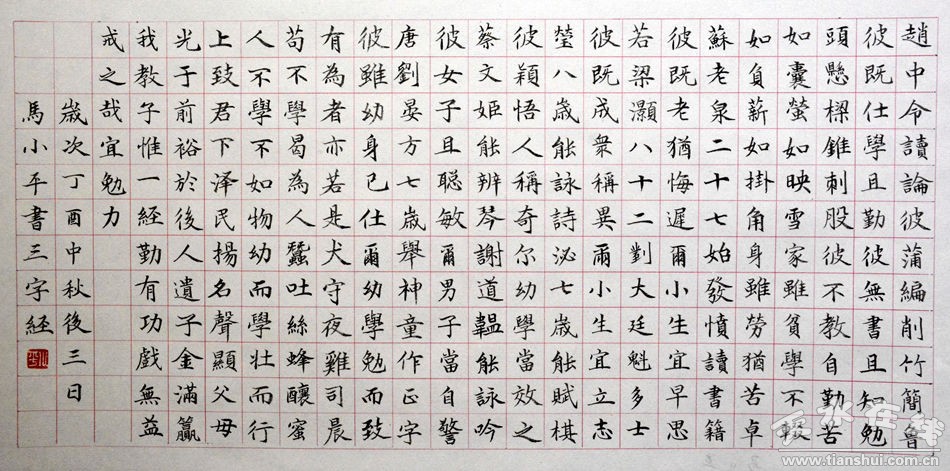 趙中令讀論彼蒲編削竹簡魯
彼既仕學且勤彼無書且知勉
頭懸樑錐刺股彼不教自勤苦
如囊螢如映雪家雖貧學不輟
如負薪如掛角身雖勞猶苦卓
蘇老泉二十七始發憤讀書籍
彼既老猶悔遲爾小生宜早思
若梁灝八十二對大廷魁多士
彼既成眾稱異爾小生宜立志
瑩八歲能詠詩泌七歲能賦棋
彼穎悟人稱奇尔幼學當效之
蔡文姬能辨琴謝道韞能詠吟
彼女子且聰敏爾男子當自警
唐劉晏方七歲舉神童作正字
彼雖幼身已仕爾幼學勉而致
有為者亦若是犬守夜雞司晨
苟不學曷為人蠶吐絲蜂釀蜜
人不學不如物幼而學壯而行
上致君下泽民揚名聲顯父母
光于前裕於後人遺子金滿籯
我教子惟一經勤有功戲無益
戒之哉宜勉力
歲次丁酉中秋後三日
馬小平書三字経
天水在线
www.tianshui.com.cn